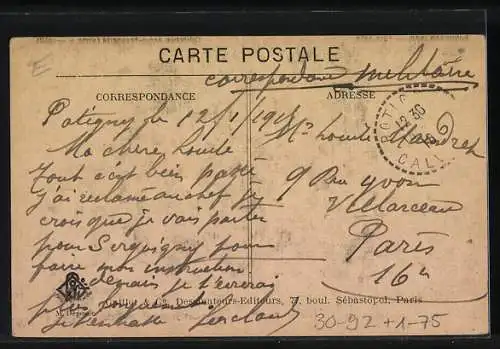 E
CARTE POSTALE
correspondance militaire
CORRESPONDANCE
ADRESSE
Potigny le 12/1/191
Ma chère Loulo
Tout c'est bien passé
j'ai reclamé au chef
crois que je vais partir
pour Serquigny pour
faire mon instruction
demain je t'écrirai
plus
Me Loulo
9 Rue Yvon
Villarceau
Paris
16e
POTIGNY
CALV
12
& Cie, Dessinateurs-Editeurs, boul. Sébastopol, Paris
30-92 + 1-75